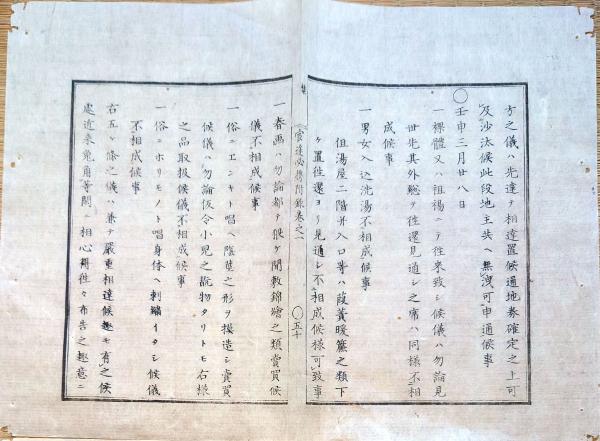 方之儀ハ先達テ相達置候通地券確定之上可
及沙汰候此段地主共ヘ無洩可申通候事
〇壬申三月廿八日
一裸體又ハ袒裼ニテ往来致シ候儀ハ勿論見
世先其外總テ往還見通シ之席ハ同様不相
成候事
一男女入込洗湯不相成候事
但湯屋二階并入口等ハ葭簀暖簾之類下
ケ置往還ヨリ見通シ不相成候様可致事
官達必携附録巻之一
〇五十
一春画ハ勿論都テ猥ケ間敷錦繪之類賣買候
儀不相成候事
一俗ニエンキト唱ヘ陰莖之形ヲ模造シ賣買
候儀ハ勿論仮令小児之翫物タリトモ右様
之品取扱候儀不相成候事
一俗ニホリモノト唱身体ヘ刺繍イタシ候儀
不相成候事
右五ケ條之儀ハ兼テ嚴重相達候趣モ有之候
處近来兎角等閑ニ相心得往々布告之趣意ニ